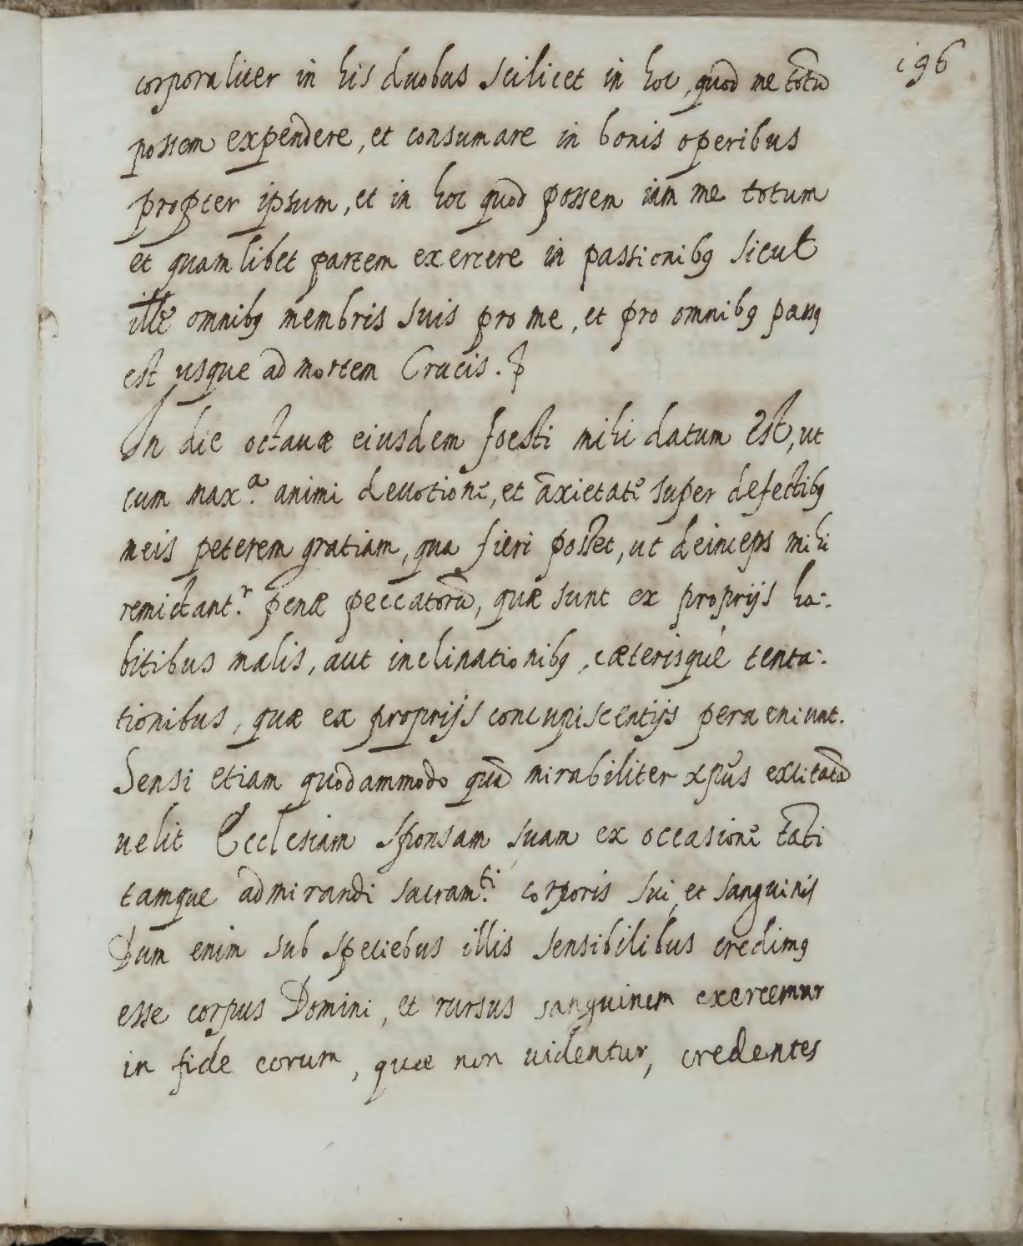 196
corporaliter in his duobus scilicet in hoc, quod me totũ
possem expendere, et consumare in bonis operibus
propter ipsum, et in hoc quod possem iam me totum
et quamlibet partem exercere in passionibꝫ sicut
ille omnibꝫ membris suis pro me, et pro omnibꝫ passꝫ
est usque ad mortem Crucis.
In die octauæ eiusdem foesti mihi datum est, ut
cum maxᵃ. animi deuotione, et ãxietate super defectibꝫ
meis peterem gratiam, qua fieri posset, ut deinceps mihi
remictantʳ. penæ peccatorũ, quæ sunt ex proprijs ha-
bitibus malis, aut inclinationibꝫ, cæterisque tenta-
tionibus, quæ ex proprijs concupiscentijs perueniunt.
Sensi etiam quodammodo quã mirabiliter xp̃us excitatã
uelit Ecclesiam sponsam suam ex occasione tãti
tamque admirandi sacramᵗⁱ. corporis sui, et sanguinis
Dum enim sub speciebus illis sensibilibus credimꝫ
esse corpus Domini, et rursus sanguinem exercemur
in fide eorum, quæ non uidentur, credentes